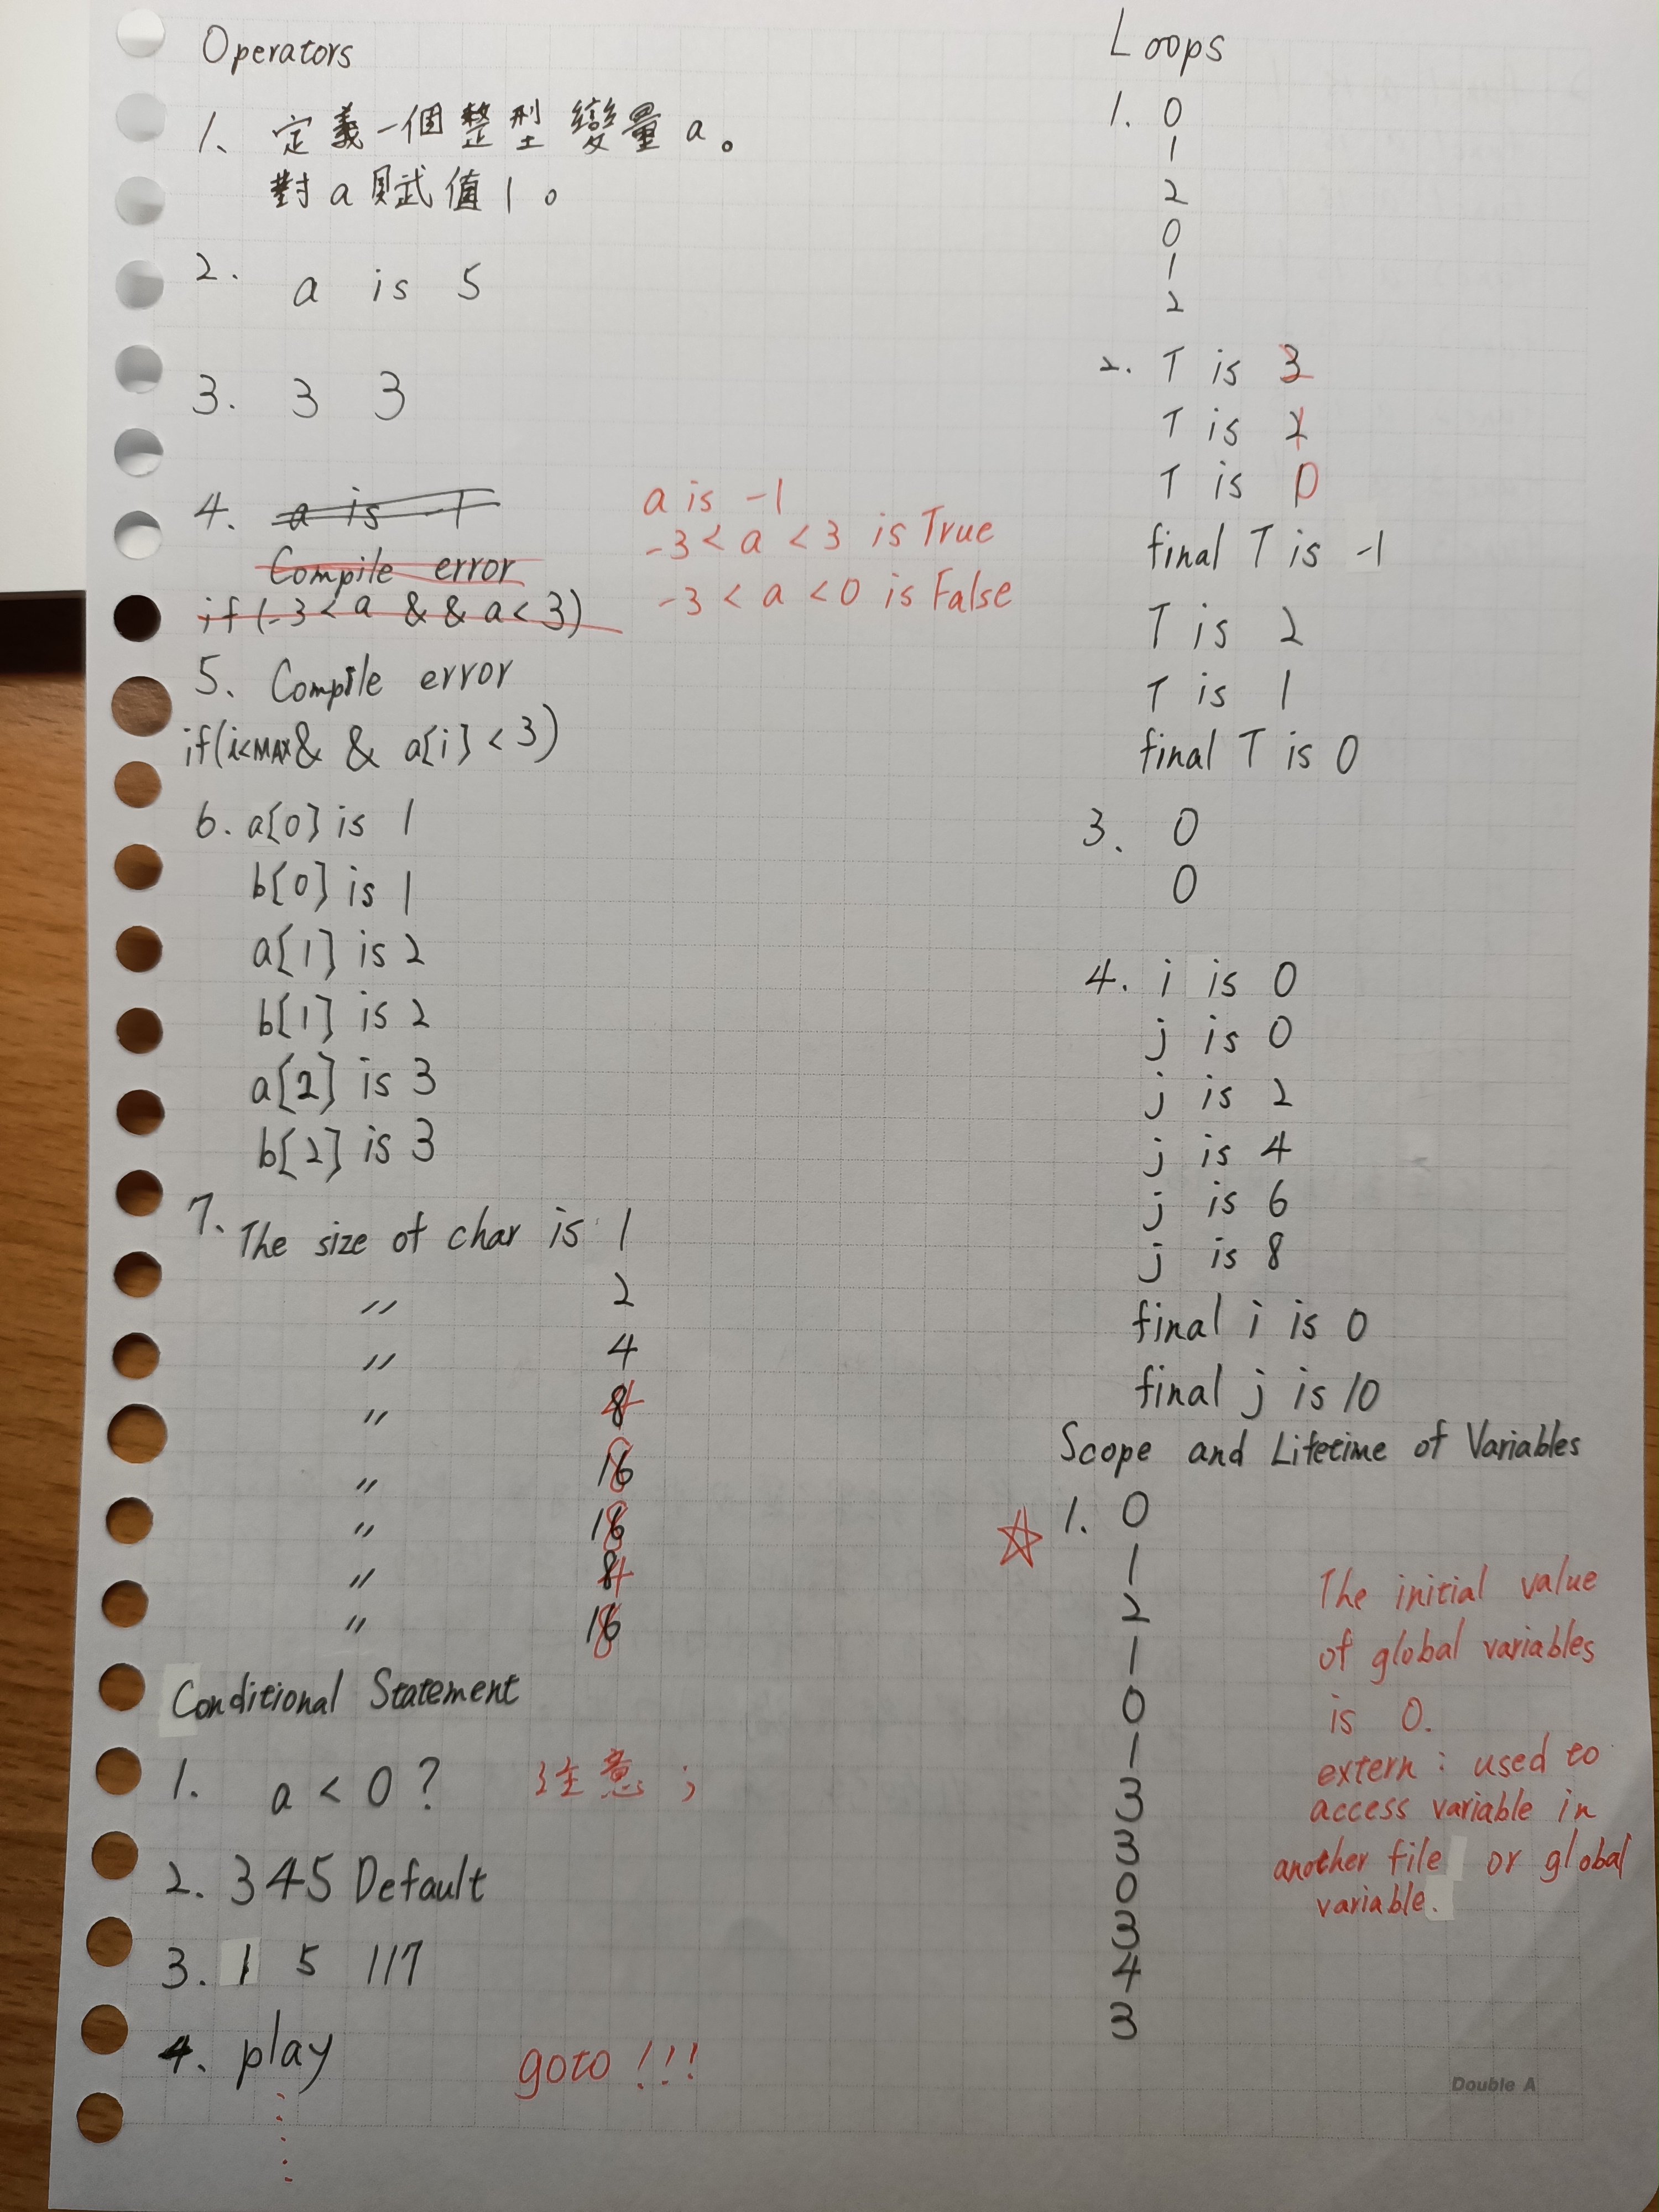 Operators
1、定義一個整型變量a。
對a賦值1。
2. a is 5
3. 3 3
4. a is -1
Compile error
if(-3<a && a<3)
a is -1
-3<a<3 is True
-3<a<0 is False
5、Compile error
if(i<MAX && a[i]<3)
6. a[0] is 1
b[0] is 1
a[1] is 2
b[1] is 2
a[2] is 3
b[2] is 3
7. The size of char is 1
〃 2
〃 4
〃 8
〃 16
〃 16
〃 8
〃 16
Conditional Statement
1. a<0? 注意;
2. 345 Default
3. 1 5 117
4. play goto!!!
Loops
1. 0
1
2
0
1
2
2. T is 3
T is
T is 0
final T is -1
T is 2
T is 1
final T is 0
3. 0
0
4. i is 0
j is 0
j is 2
j is 4
j is 6
j is 8
final i is 0
final j is 10
Scope and Lifetime of Variables
1. 0
1
2
1
0
1
3
3
0
3
4
3
The initial value
of global variables
is 0.
extern: used to
access variable in
another file or global
variable.
Double A